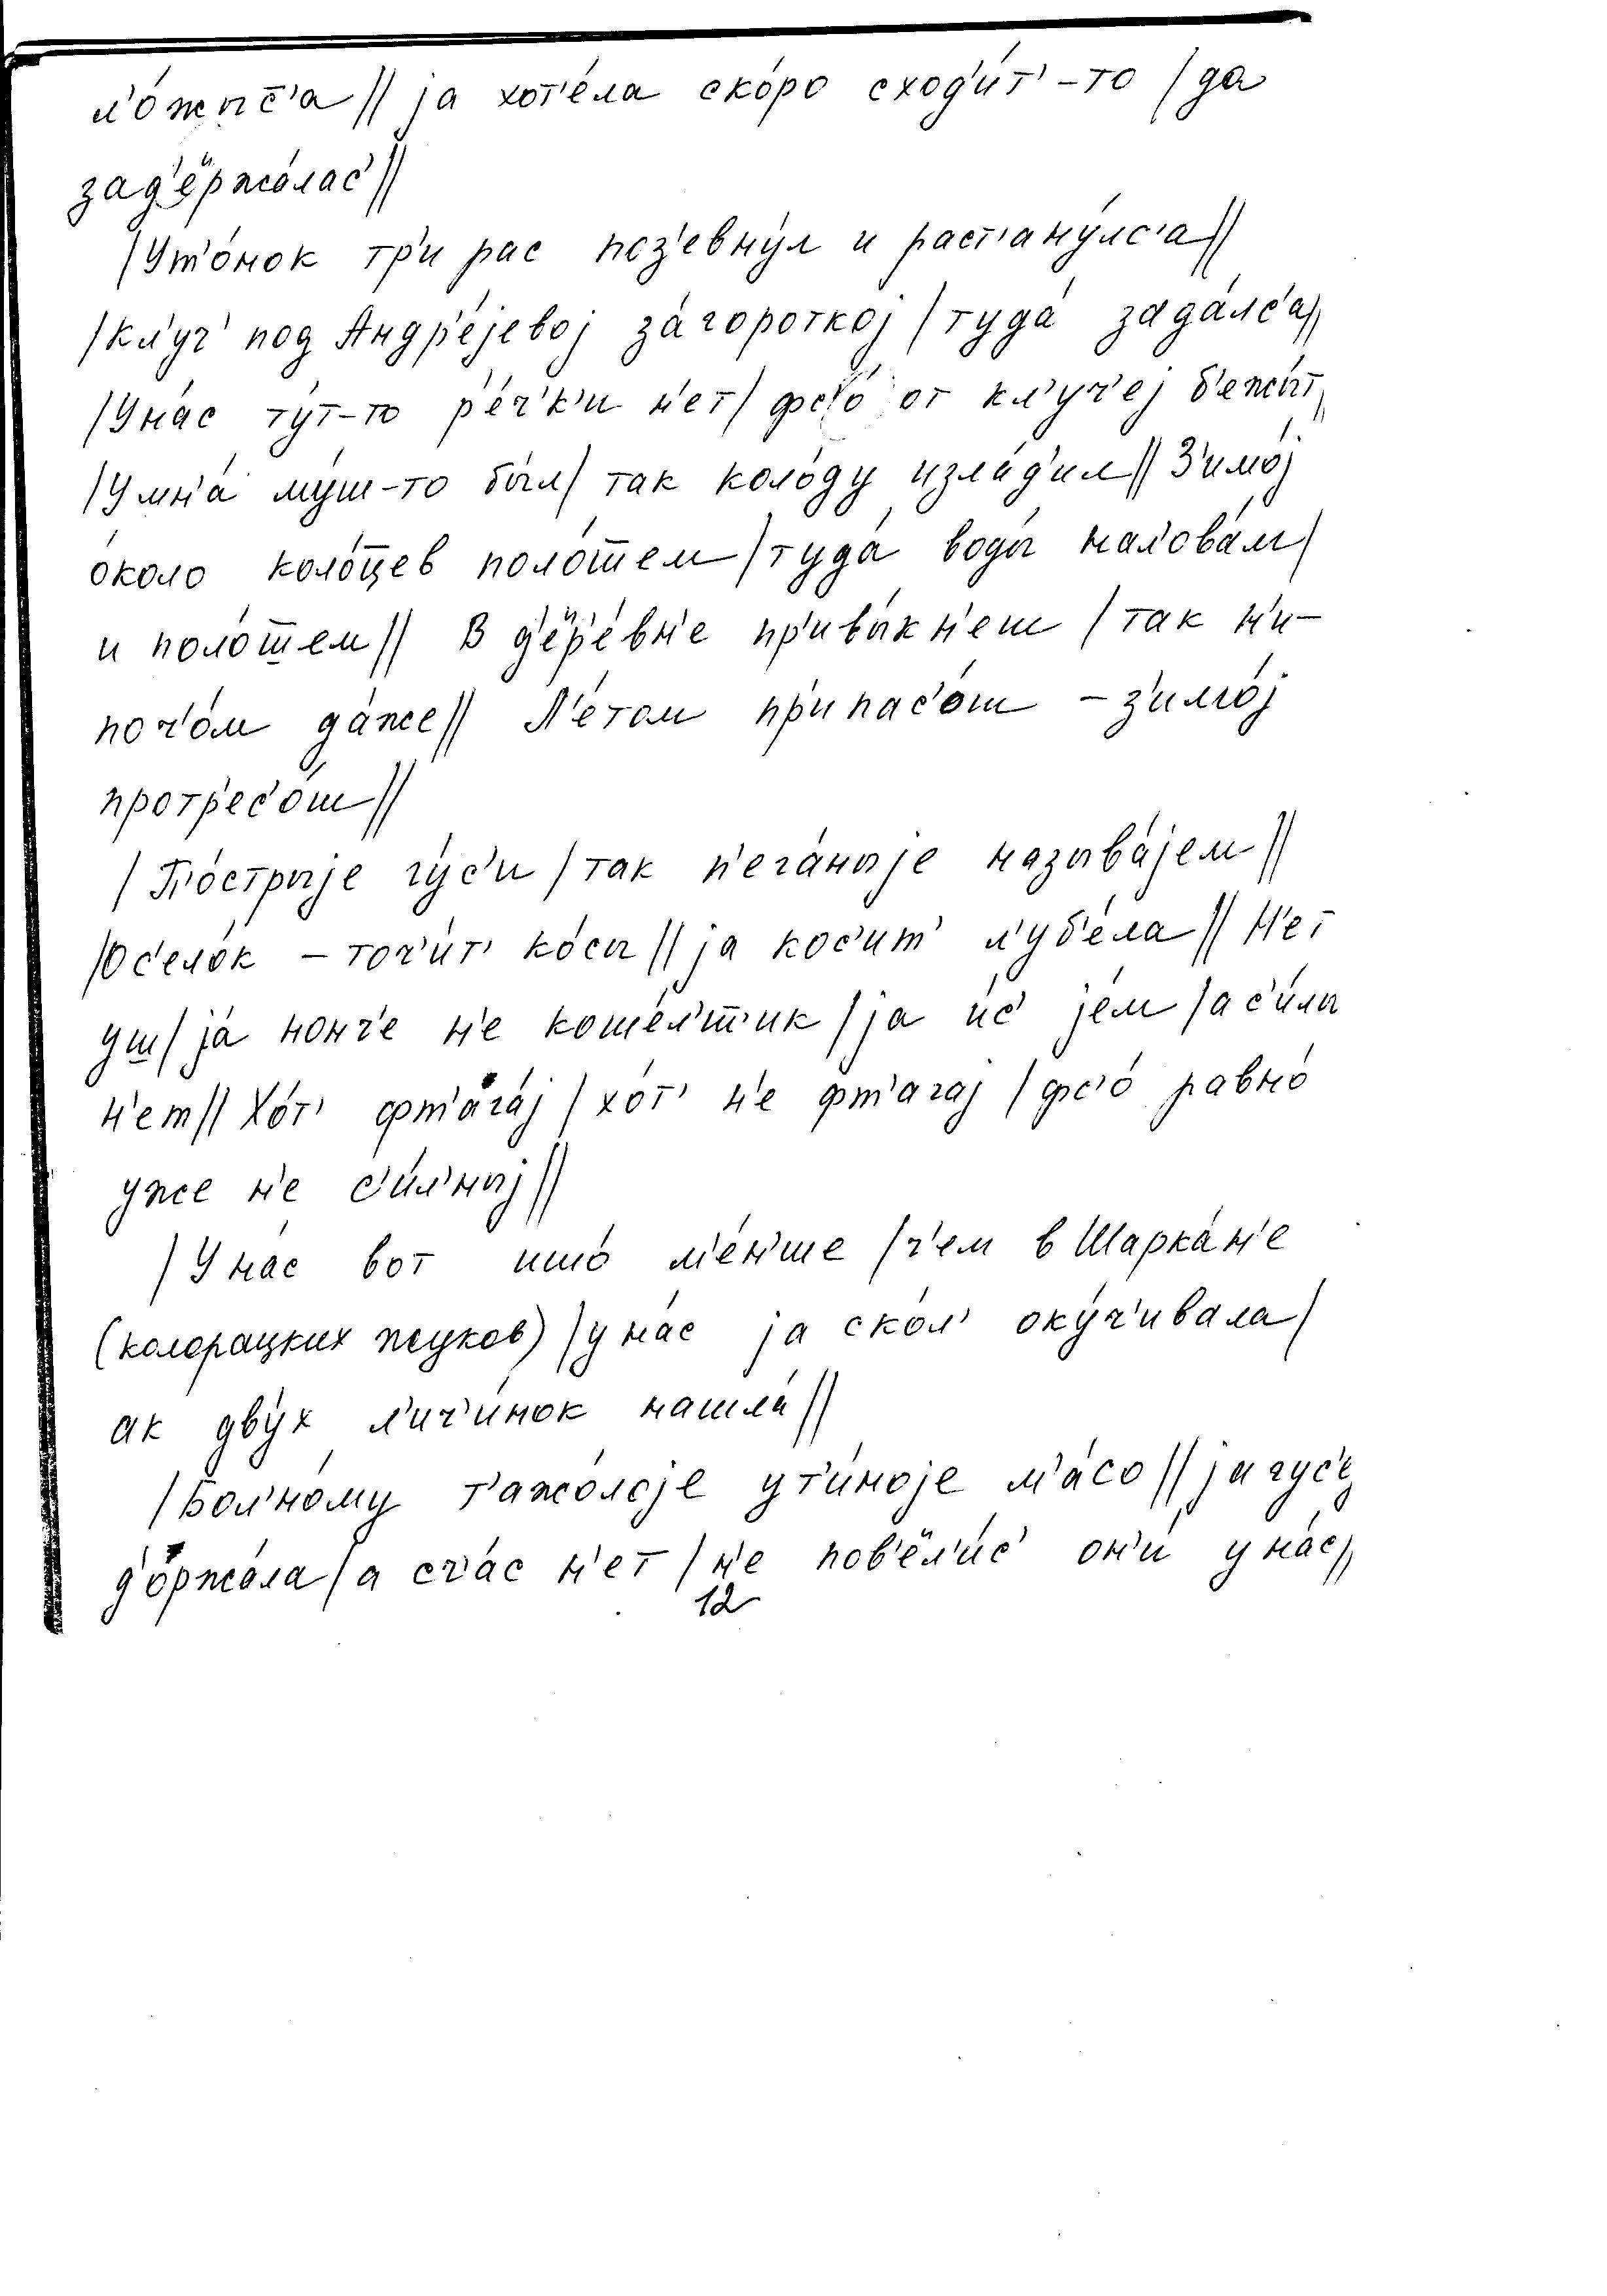 л'о́жыc̄'а // jа хот'е́ла ско́ро сход'и́т'-то / да
зад'ӗржа́лас' //
/ Ут'о́нок тр'и рас поз'евну́л и раст'ану́лс'а //
/ Кл'уч' под Андр'е́jевоj за́городкоj / туда́ зада́лс'а //
/ У на́с ту́т-то р'е́ч'к'и н'ет / фс'о́ от кл'уч'еj б'ежы́т
/ У м'н'а́ му́ш-то бы́л / так коло́ду изла́д'ил // З'имо́j
о́коло коло́цев поло́шшем / туда́ воды́ нал'ова́м /
и поло́шшем // В д'ӗр'е́вн'е пр'ивы́кн'еш / так н'и-
поч'о́м да́же // Л'е́том пр'ипас'о́ш – з'имо́j
протр'ес'о́ш //
/ П'о́стрыjе гу́с'и / так п'ега́ныjе называ́jем //
/ Ос'ело́к – точ'и́т' ко́сы // jа кос'и́т' л'уб'е́ла // Н'ет
уш / jа́ нонч'е н'е коше́л'шшик / jа и́с' jе́м / а с'и́лы
н'ет // Хо́т' фт'а́га́j / хо́т' н'е фт'агаj / фс'о́ равно́
уже н'е с'и́л'ныj //
/ У на́с вот ишо́ м'е́н'ше / ч'ем в Шарка́н'е
(колорацких жуков) / у на́с jа скол' оку́ч'ивала /
ак дву́х л'ич'и́нок нашла́ //
/ Бол'но́му т'ажо́лоjе ут'и́ноjе м'а́со // jа гус'е́j
д'ӧржа́ла / а сч'а́с н'ет / н'е пов'ӗл'и́с' он'и́ у на́с //
12